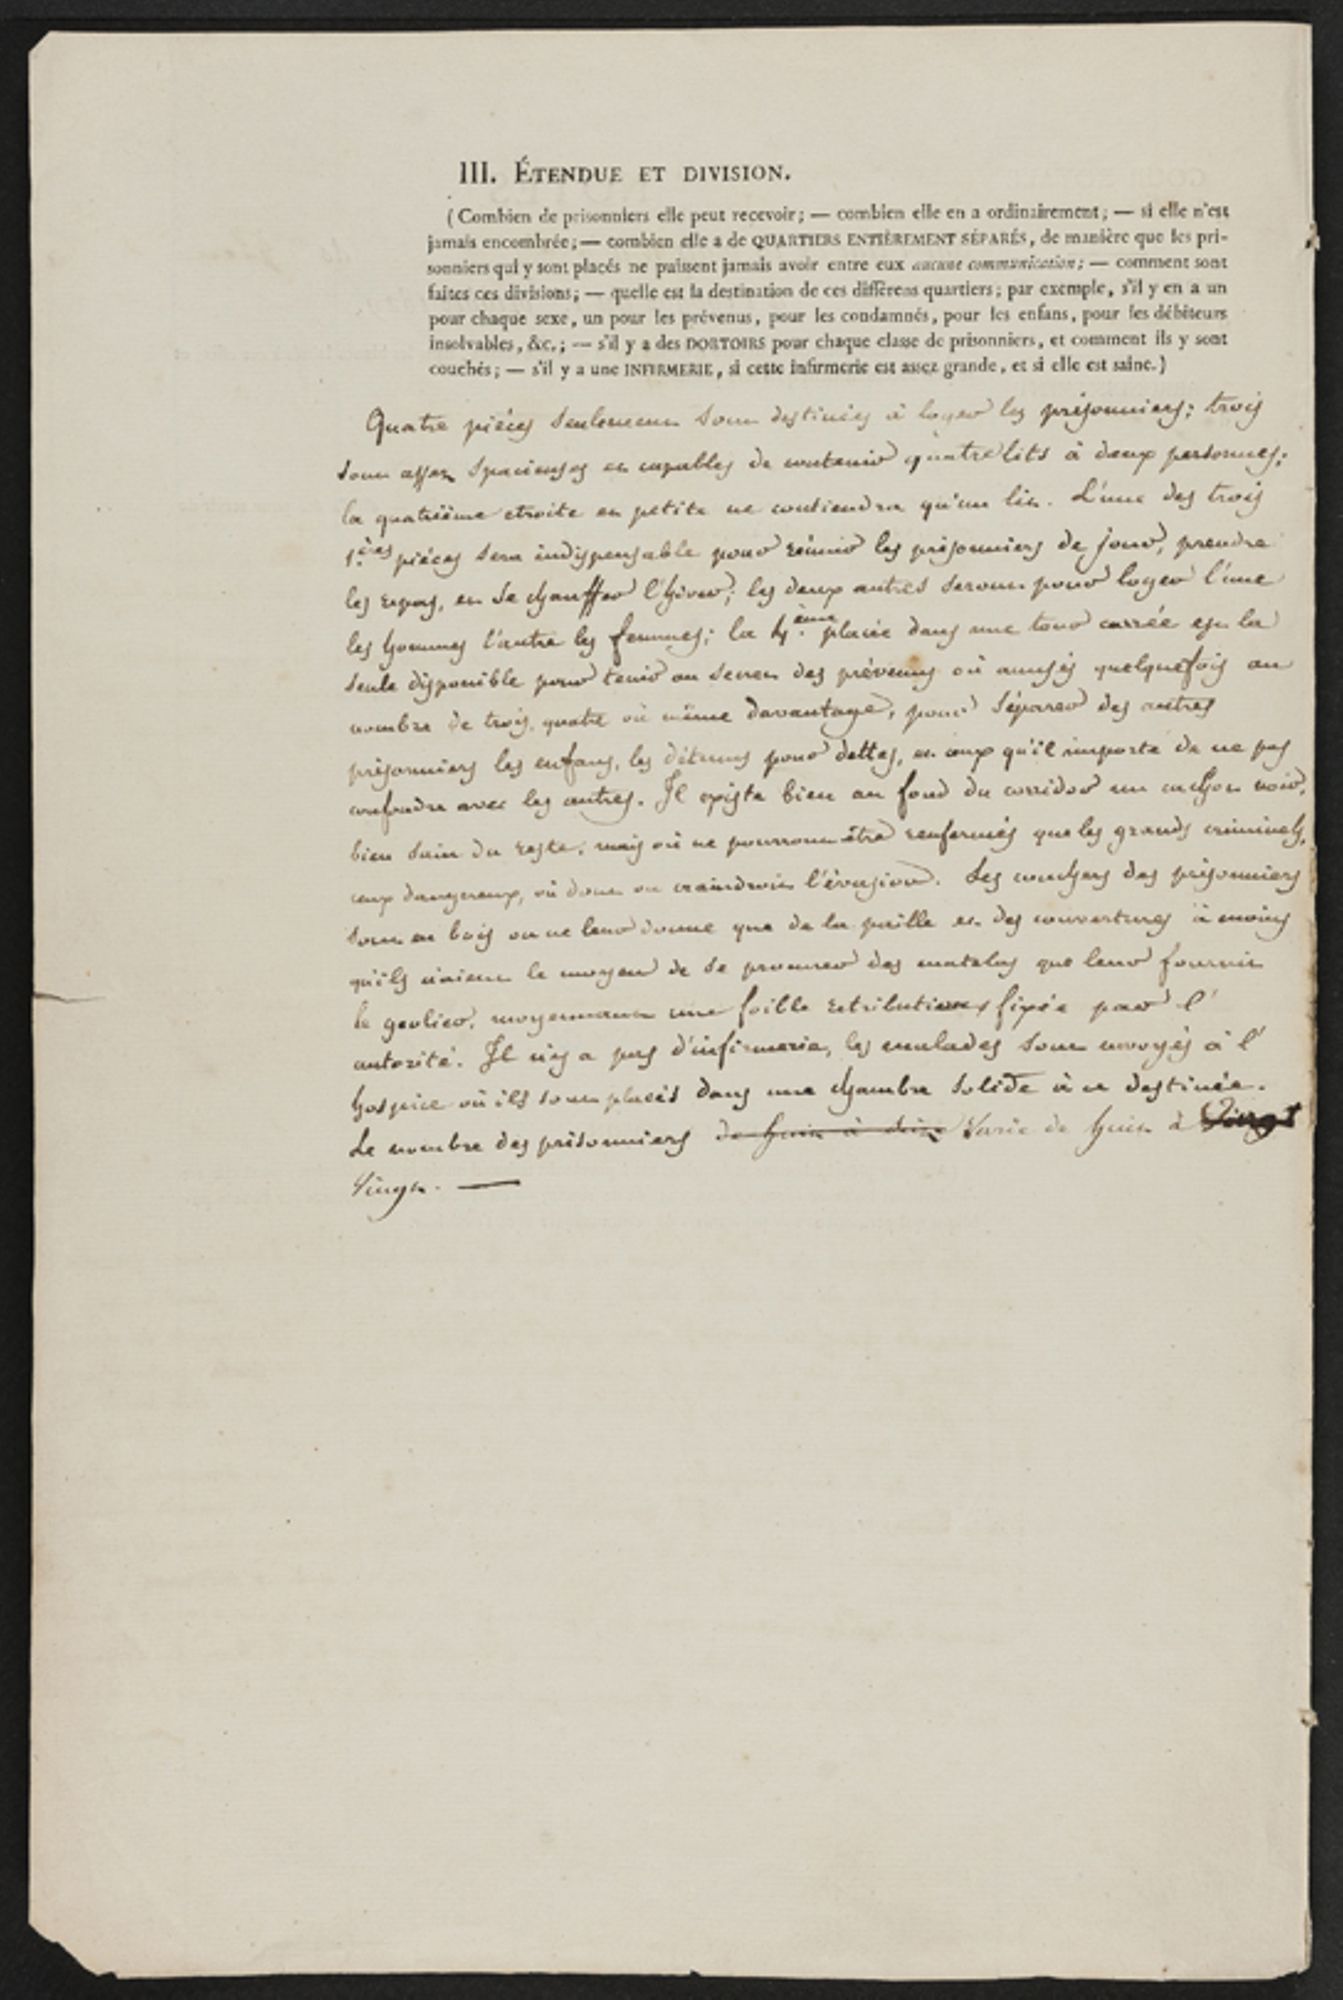 III. ÉTENDUE ET DIVISION.
(Combien de prisonniers elle peut recevoir; — combien elle en a ordinairement; — si elle n'est
jamais encombrée; — combien elle a de QUARTIERS ENTIÈREMENT SÉPARÉS, de manière que les pri-
sonniers qui y sont placés ne puissent jamais avoir entre eux aucune communication; — comment sont
faites ces divisions; — quelle est la destination de ces différens quartiers; par exemple, s'il y en a un
pour chaque sexe, un pour les prévenus, pour les condamnés, pour les enfans, pour les débiteurs
insolvables, &c.; — s'il y a des DORTOIRS pour chaque classe de prisonniers, et comment ils y sont
couchés; — s'il y a une INFIRMERIE, si cette infirmerie est assez grande, et si elle est saine.)
Quatre pièces seulement sont destinées à loger les prisonniers: trois
sont assez spacieuses et capables de contenir quatre lits à deux personnes;
la quatrième etroite et petite ne contiendra qu'un lit. L'une des trois
1.ères pièces sera indispensable pour réunir les prisonniers de jour, prendre
les repas, et se chauffer l'hiver; les deux autres seront pour loger l'une
les hommes l'autre les femmes; la 4.ème placée dans une tour carrée est la
seule disponible pour tenir au secret des prévenus où accusés quelquefois au
nombre de trois, quatre où même davantage, pour séparer des autres
prisonniers les enfans, les détenus pour dettes, et ceux qu'il importe de ne pas
confondre avec les autres. Il existe bien au fond du corridor un cachot noir,
bien sain du reste, mais où ne pourront être renfermés que les grands criminels,
ceux dangereux, où dont on craindroit l'évasion. Les couchers des prisonniers
sont en bois on ne leur donne que de la paille et des couvertures à moins
qu'ils n'aient le moyen de se procurer des matelas que leur fournit
le geolier, moyennant une foible retribution fixée par l'
autorité. Il n'y a pas d'infirmerie, les malades sont envoyés à l'
hospice où ils sont placés dans une chambre solide à ce destinée.
Le nombre des prisonniers de huit à dix varie de huit à Vingt
Vingt. —